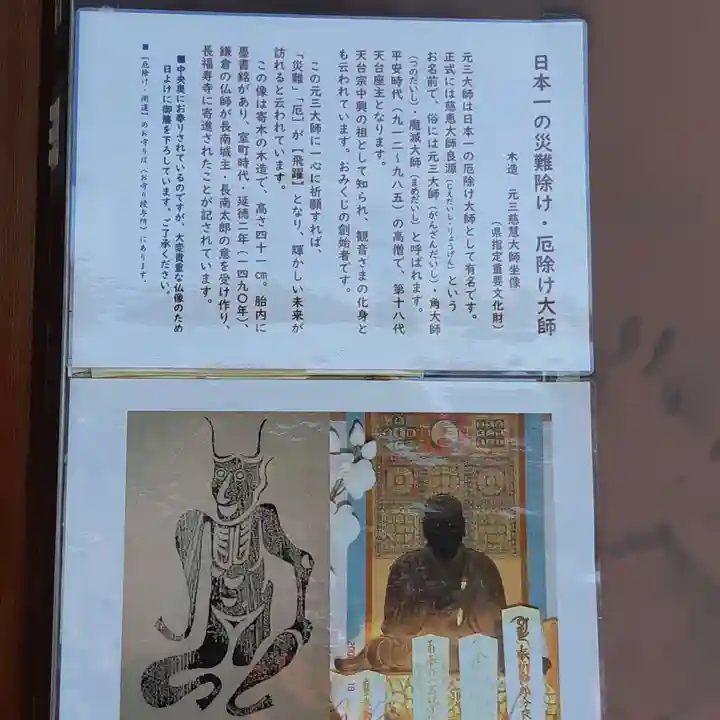 日本一の災難除け・厄除け大師
木造　元三慈慧大師坐像
（県指定重要文化財）
元三大師は日本一の厄除け大師として有名です。
正式には慈恵大師良源（じえだいし・りょうげん）という
お名前で、俗には元三大師（がんざんだいし）・角大師
（つのだいし）魔滅大師（まめだいし）と呼ばれます。
平安時代（九一二〜九八五）の高僧で、第十八代
天台座主となります。
天台宗中興の祖として知られ、観音さまの化身と
も云われています。おみくじの創始者です。
この元三大師に一心に祈願すれば、
「災難」「厄」が【飛躍】となり、輝かしい未来が
訪れると云われています。
この像は寄木の木造で、高さ四十一㎝。胎内に
墨書銘があり、室町時代・延徳二年（一四九〇年）、
鎌倉の仏師が長南城主・長南太郎の意を受け作り、
長福寿寺に寄進されたことが記されています。
■中央奥にお奉りされているのですが、大変貴重な仏像のため
日よけに御簾を下ろしています。ご了承ください。
■【厄除け・開運】のお守りは〈お守り授与所〉にあります。